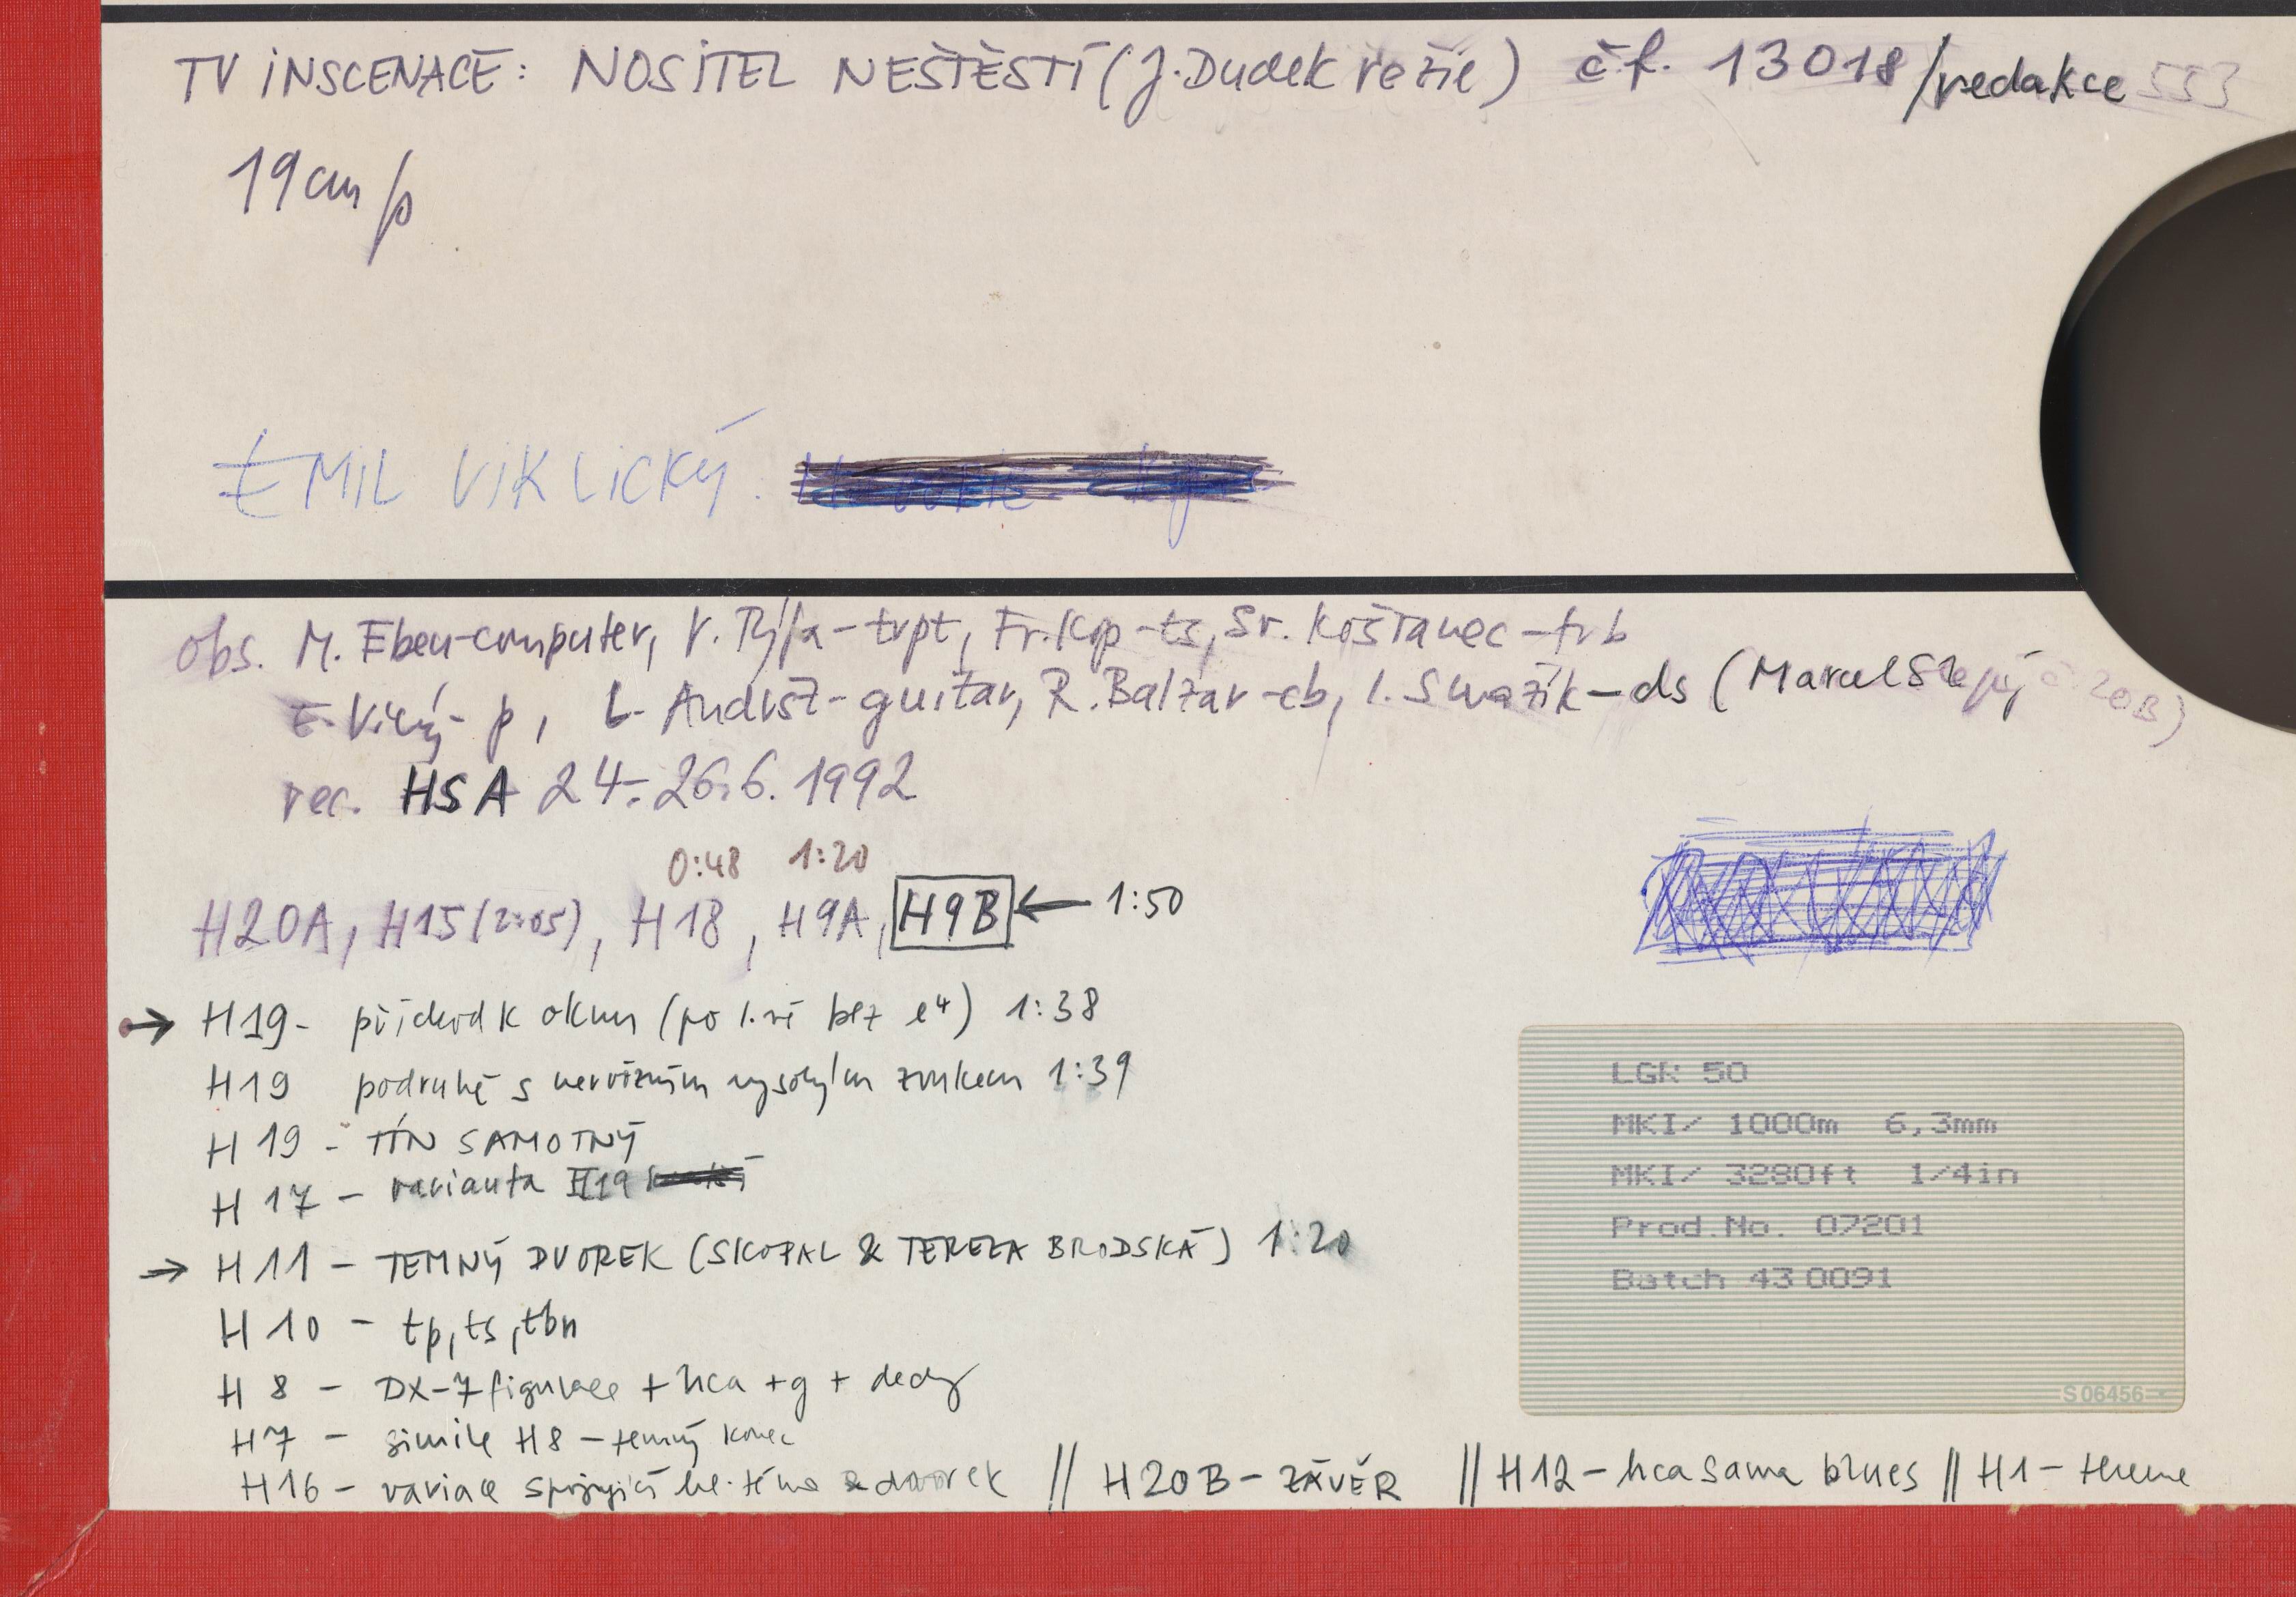 TV iNSCENACE: NOSiTEL NEŠTĚSTÍ (J. Dudek režie) č.f. 13018/redakce 553
19 cm/s
EMIL VIKLICKÝ.
obs. M. Eben-computer, V. Týfa-trpt, Fr. Kop-ts, Sv. Košťanec-trb
E. Vický-p, L. Andršt-guitar, R. Balzar-cb, I. Smažík-ds (Marcel 20B)
rec. HSA 24.-26.6.1992
0:48 1:20
H20A, H15(2:05), H18, H9A, H9B ← 1:50
→ H19- příchod k oknu (po bez e4) 1:38
H19 podruhé s nervózním vysokým zvukem 1:39
H19 - TÍN SAMOTNÝ
H17 - varianta H19
→ H11 - TEMNÝ DVOREK (SKOPAL & TEREZA BRODSKÁ) 1:20
H10 - tp, ts, tbn
H8 - DX-7 figurace + hca + g + dechy
H7 - simile H8 - temný konec
H16 - variace spojující hl. téma & dvorek // H20B - ZÁVĚR // H12 - hca sama blues // H1 - theme
LGR 50
MKI/ 1000m 6,3mm
MKI/ 3280ft 1/4in
Prod.No. 07201
Batch 43 0091
S 06456